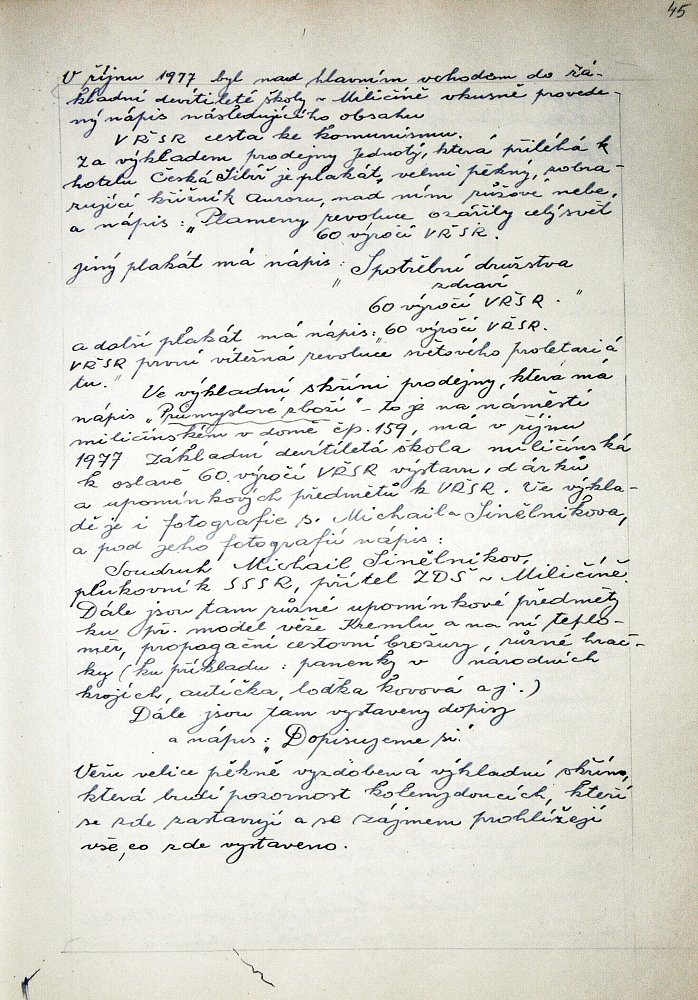 45
V říjnu 1977 byl nad hlavním vchodem do zá-
kladní devítileté školy v Miličíně vkusně provede-
ný nápis následujícího obsahu
VŘSR cesta ke komunismu.
Za výkladem prodejny Jednoty, která přiléhá k
hotelu Česká Sibiř je plakát, velmi pěkný, zobra-
zující křižník Auroru, nad ním růžové nebe,
a nápis: „Plameny revoluce ozářily celý svět
60 výročí VŘSR.
jiný plakát má nápis: „Spotřební družstva
zdraví
60 výročí VŘSR."
a další plakát má nápis: „60 výročí VŘSR.
VŘSR první vítězná revoluce světového proletariá
tu."
Ve výkladní skříni prodejny, která má
nápis „Průmyslové zboží" - to je na náměstí
miličínském v domě čp. 159, má v říjnu
1977 Základní devítiletá škola miličínská
k oslavě 60. výročí VŘSR výstavu, dárků
a upomínkových předmětů k VŘSR. Ve výkla-
dě je i fotografie s. Michaila Sinělnikova,
a pod jeho fotografií nápis:
Soudruh Michail Sinělnikov,
plukovník SSSR, přítel ZDŠ v Miličíně
Dále jsou tam různé upomínkové předměty
ku př. model věže Kremlu a na ní teplo-
měr, propagační cestovní brožury, různé hrač-
ky (ku příkladu: panenky v národních
krojích, autíčka, loďka kovová aj.)
Dále jsou tam vystaveny dopisy
a nápis: „Dopisujeme si."
Věru velice pěkně vyzdobená výkladní skříň,
která budí pozornost kolemjdoucích, kteří
se zde zastavují a se zájmem prohlížejí
vše, co zde vystaveno.